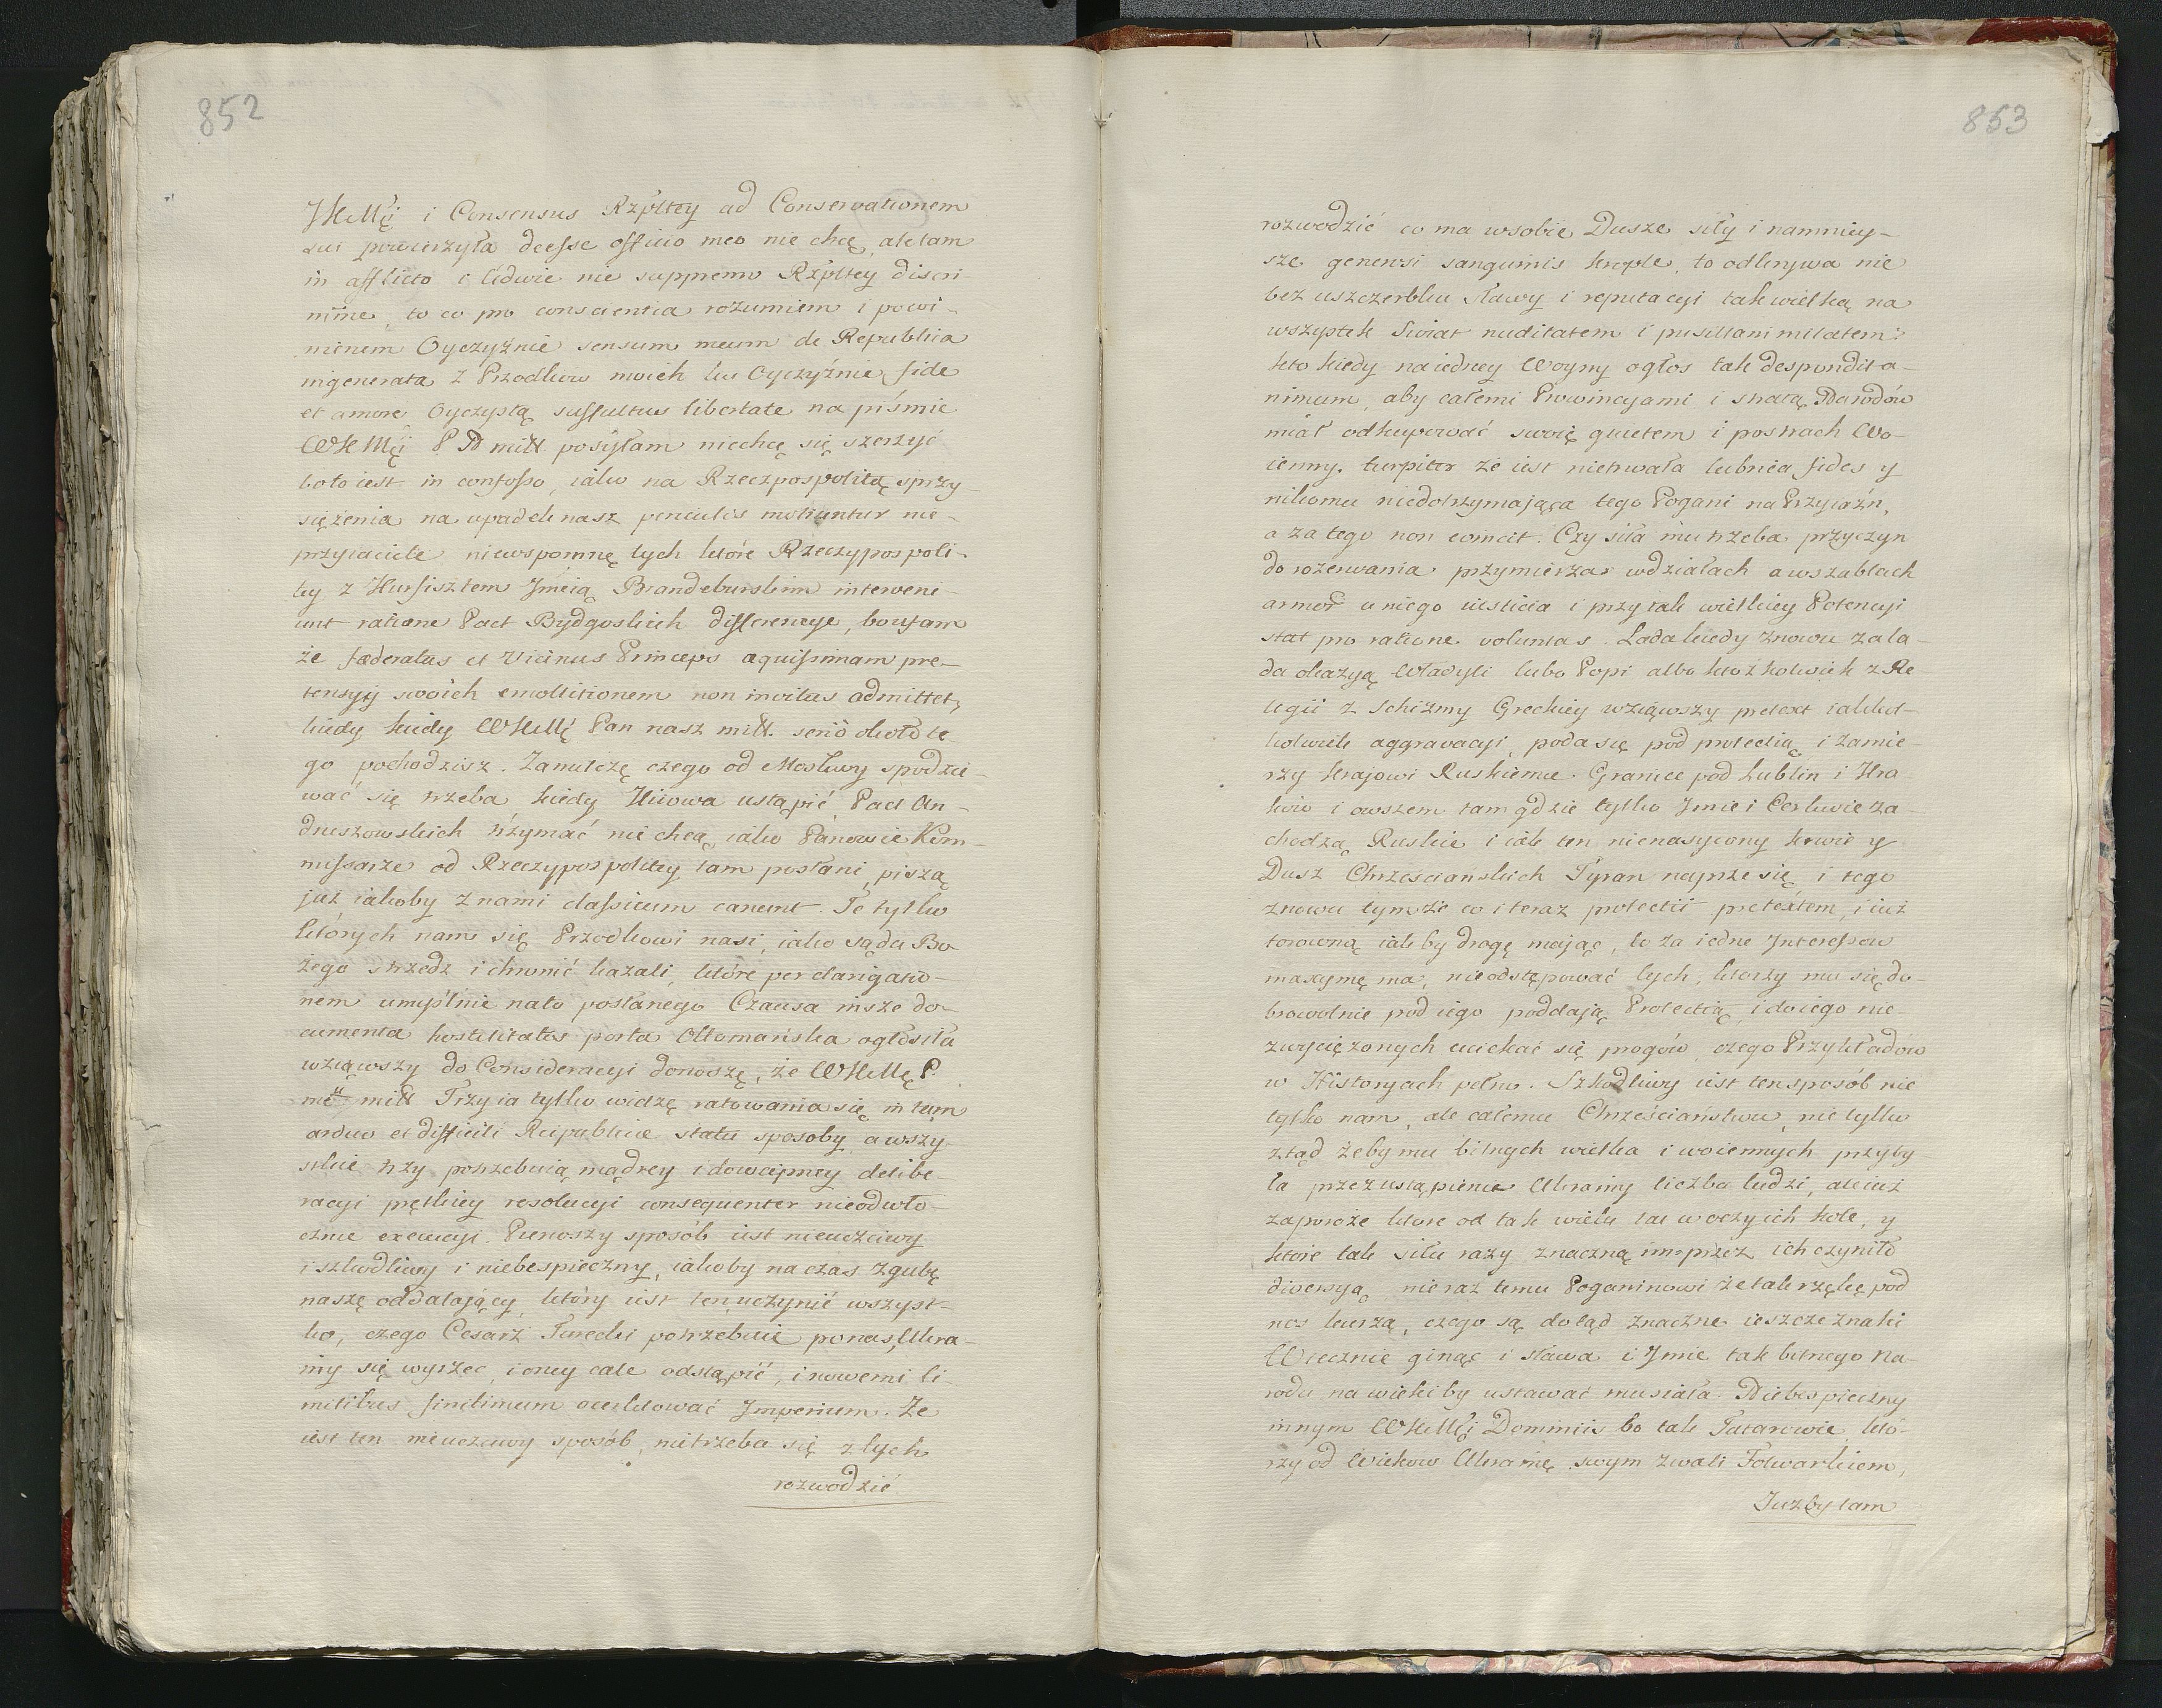 852
JKMci i Consensus Rzpltey ad Conservationem
sui powierzyła deesse officio meo nie chcę, ale tam
in afflicto i ledwie nie supremo Rzpltey discri-
mine, to co pro conscientia rozumiem i powi-
nienem Oyczyźnie sensum meum de Republica
ingenerata z Przodkow moich ku Oyczyźnie fide
et amore Oyczystą suffultus libertate na piśmie
WKMci P N miłł. posyłam niechcę się szerzyć
bo to iest in confesso, iako na Rzeczpospolitę sprzy-
siężenia na upadek nasz periculis moliuntur nie-
przyiaciele niewspomnę tych które Rzeczypospoli-
ty z Kurfisztem Jmcią Brandeburskim interveni-
unt ratione Pact Bydgoskich differencye, bo ufam
że fæderatus et Vicinus Princeps æquissimam pre-
tensyy swoich emollitionem non invitus admittet,
kiedy kiedy WKMć Pan nasz miłł. serio około te-
go pochodzisz. Zamilczę czego od Moskwy spodzie-
wać się trzeba kiedy Kiiowa ustąpić, Pact An-
druszowskich trzymać nie chcą, iako Panowie Kom-
missarze od Rzeczypospolitey tam posłani, piszą
już iakoby z nami classicum canunt. Te tylko
których nam się Przodkowi nasi, iako sądu Bo-
żego strzedz i chronić kazali, które per clarigatio-
nem umyślnie nato posłanego Czausa insze do-
cumenta hostilitatis porta Ottomańska ogłosiła
wziąwszy do Consideracyi donoszę, że WKMci P.
me miłł Trzy ia tylko widzę ratowania się in tam
arduo et difficili Reipublicæ statu sposoby, a wszy-
stkie trzy potrzebuią mądrey i dowcipney delibe-
racyi prętkiey resolucyi consequenter nieodwło-
cznie execucyi. Pierwszy sposób iest nieuczciwy
i szkodliwy i niebespieczny, iakoby na czas zgubę
naszę oddalaiący, który iest ten, uczynić wszyst-
ko, czego Cesarz Turecki potrzebuie po nas, Ukra-
iny się wyrzec, i oney cale odstąpić, i nowemi li-
mitibus finitimum ocerklować Imperium. Że
iest ten nieuczciwy sposób, nietrzeba się z tych
rozwodzić
853
rozwodzić co ma w sobie Dusze siły i namniey-
sze generosi sanguinis krople, to odkrywa nie
bez uszczerbku sławy i reputacyi tak wielką na
wszystek Swiat nuditatem i pusillanimitatem:
kto kiedy na iedney Woyny ogłos tak despondit a-
nimum, aby całemi Prowincyami i stratą Narodów
miał odkupować swoię quietem i postrach Wo-
ienny. turpiter że iest nietrwała lubrica fides y
nikomu niedotrzymaiąca tego Pogani na Przyiaźń,
a za tego non eineit. Czy siła mu trzeba przyczyn
do rozerwania przymierza w działach a w szablach
armor u niego iusticia i przy tak wielkiey Potencyi
stat pro ratione voluntas. Lada kiedy znowu za la-
da okazyą Władyki lubo Popi albo ktożkolwiek z Re
ligii z Schizmy Greckiey wziąwszy pretext iakiei-
kolwiek aggravacyi, poda się pod protectią, i zamie-
rzy krajowi Ruskiemu. Granice pod Lublin i Kra-
ków i owszem tam gdzie tylko Jmie i Cerkwie za-
chodzą Ruskie i iak ten nienasycony krwie y
Dusz Chrześciańskich Tyran naprze się i tego
znowu tymże co i teraz protectii pretextem, i iuż
torowną iakby drogę maiąc, to za iedne Interessow
maxymę ma, nieodstępować tych, którzy mu się do-
browolnie pod iego poddają Protectią, i do iego nie-
zwyciężonych uciekać się progów, czego Przykładow
w Historyach pełno. Szkodliwy iest ten sposób nie
tylko nam, ale całemu Chrześciaństwu, nie tylko
ztąd żeby mu bitnych wielka i woiennych przyby-
ła przez ustąpienie Ukrainy liczba ludzi, ale iuż
zaporoże które od tak wielu lat w oczy ich kole, y
które tak siłu razy znaczną im przez ich czyniło
diversyą, nieraz temu Poganinowi że tak rzękę pod
nos kurzą, czego są dotąd znaczne ieszcze znaki
Wiecznie ginąc i sława i Jmie tak bitnego Na-
rodu na wieki by ustawać musiała. Niebespieczny
innym WKMci Dominiis bo tak Tatarowie któ-
rzy od Wieków Ukrainę swym zwali Folwarkiem,
Juzby tam